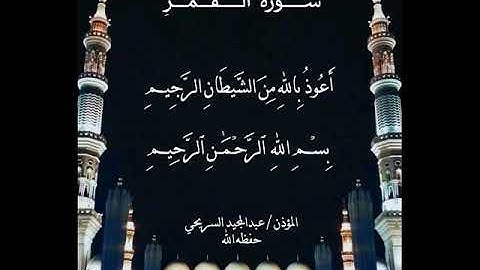 سورة القمر
أَعُوذُ بِاللهِ مِنَ الشَّيطَانِ الرَّجِيمِ
بِسۡمِ اللهِ ٱلرَّحۡمَٰنِ ٱلرَّحِيمِ
المؤذن / عبدالمجيد السريحي
حفظه الله